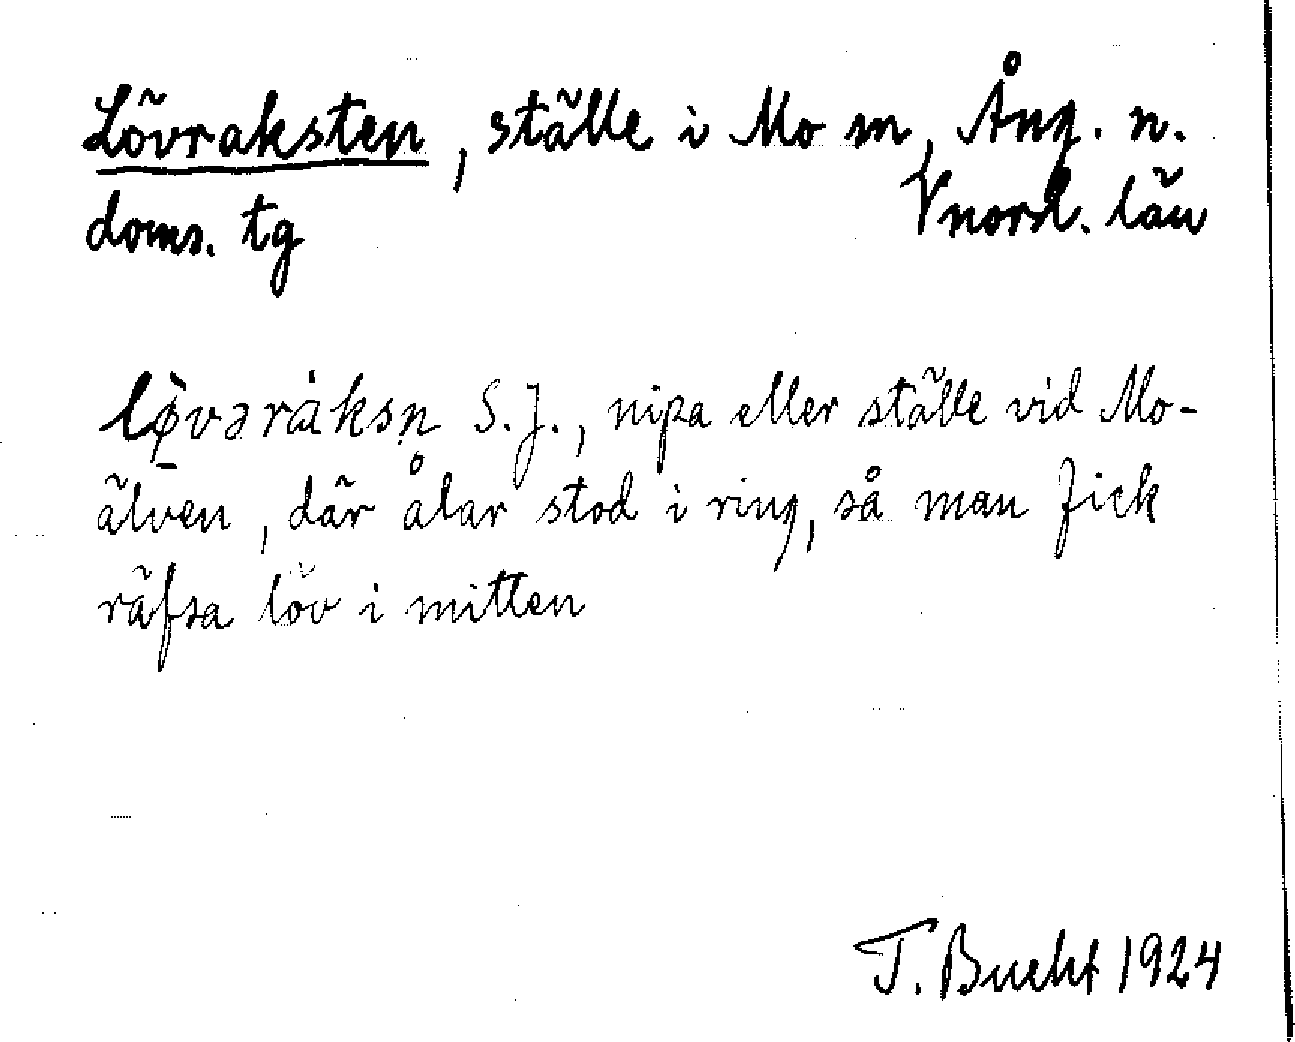 Lövraksten, ställe i Mo sn, Ång. n.
doms. tg Vnorrl. län
lø̀vəràksn̥ S.J., nipa eller ställe vid Mo-
älven, där ålar stod i ring, så man fick
räfsa löv i mitten
T. Bucht 1924